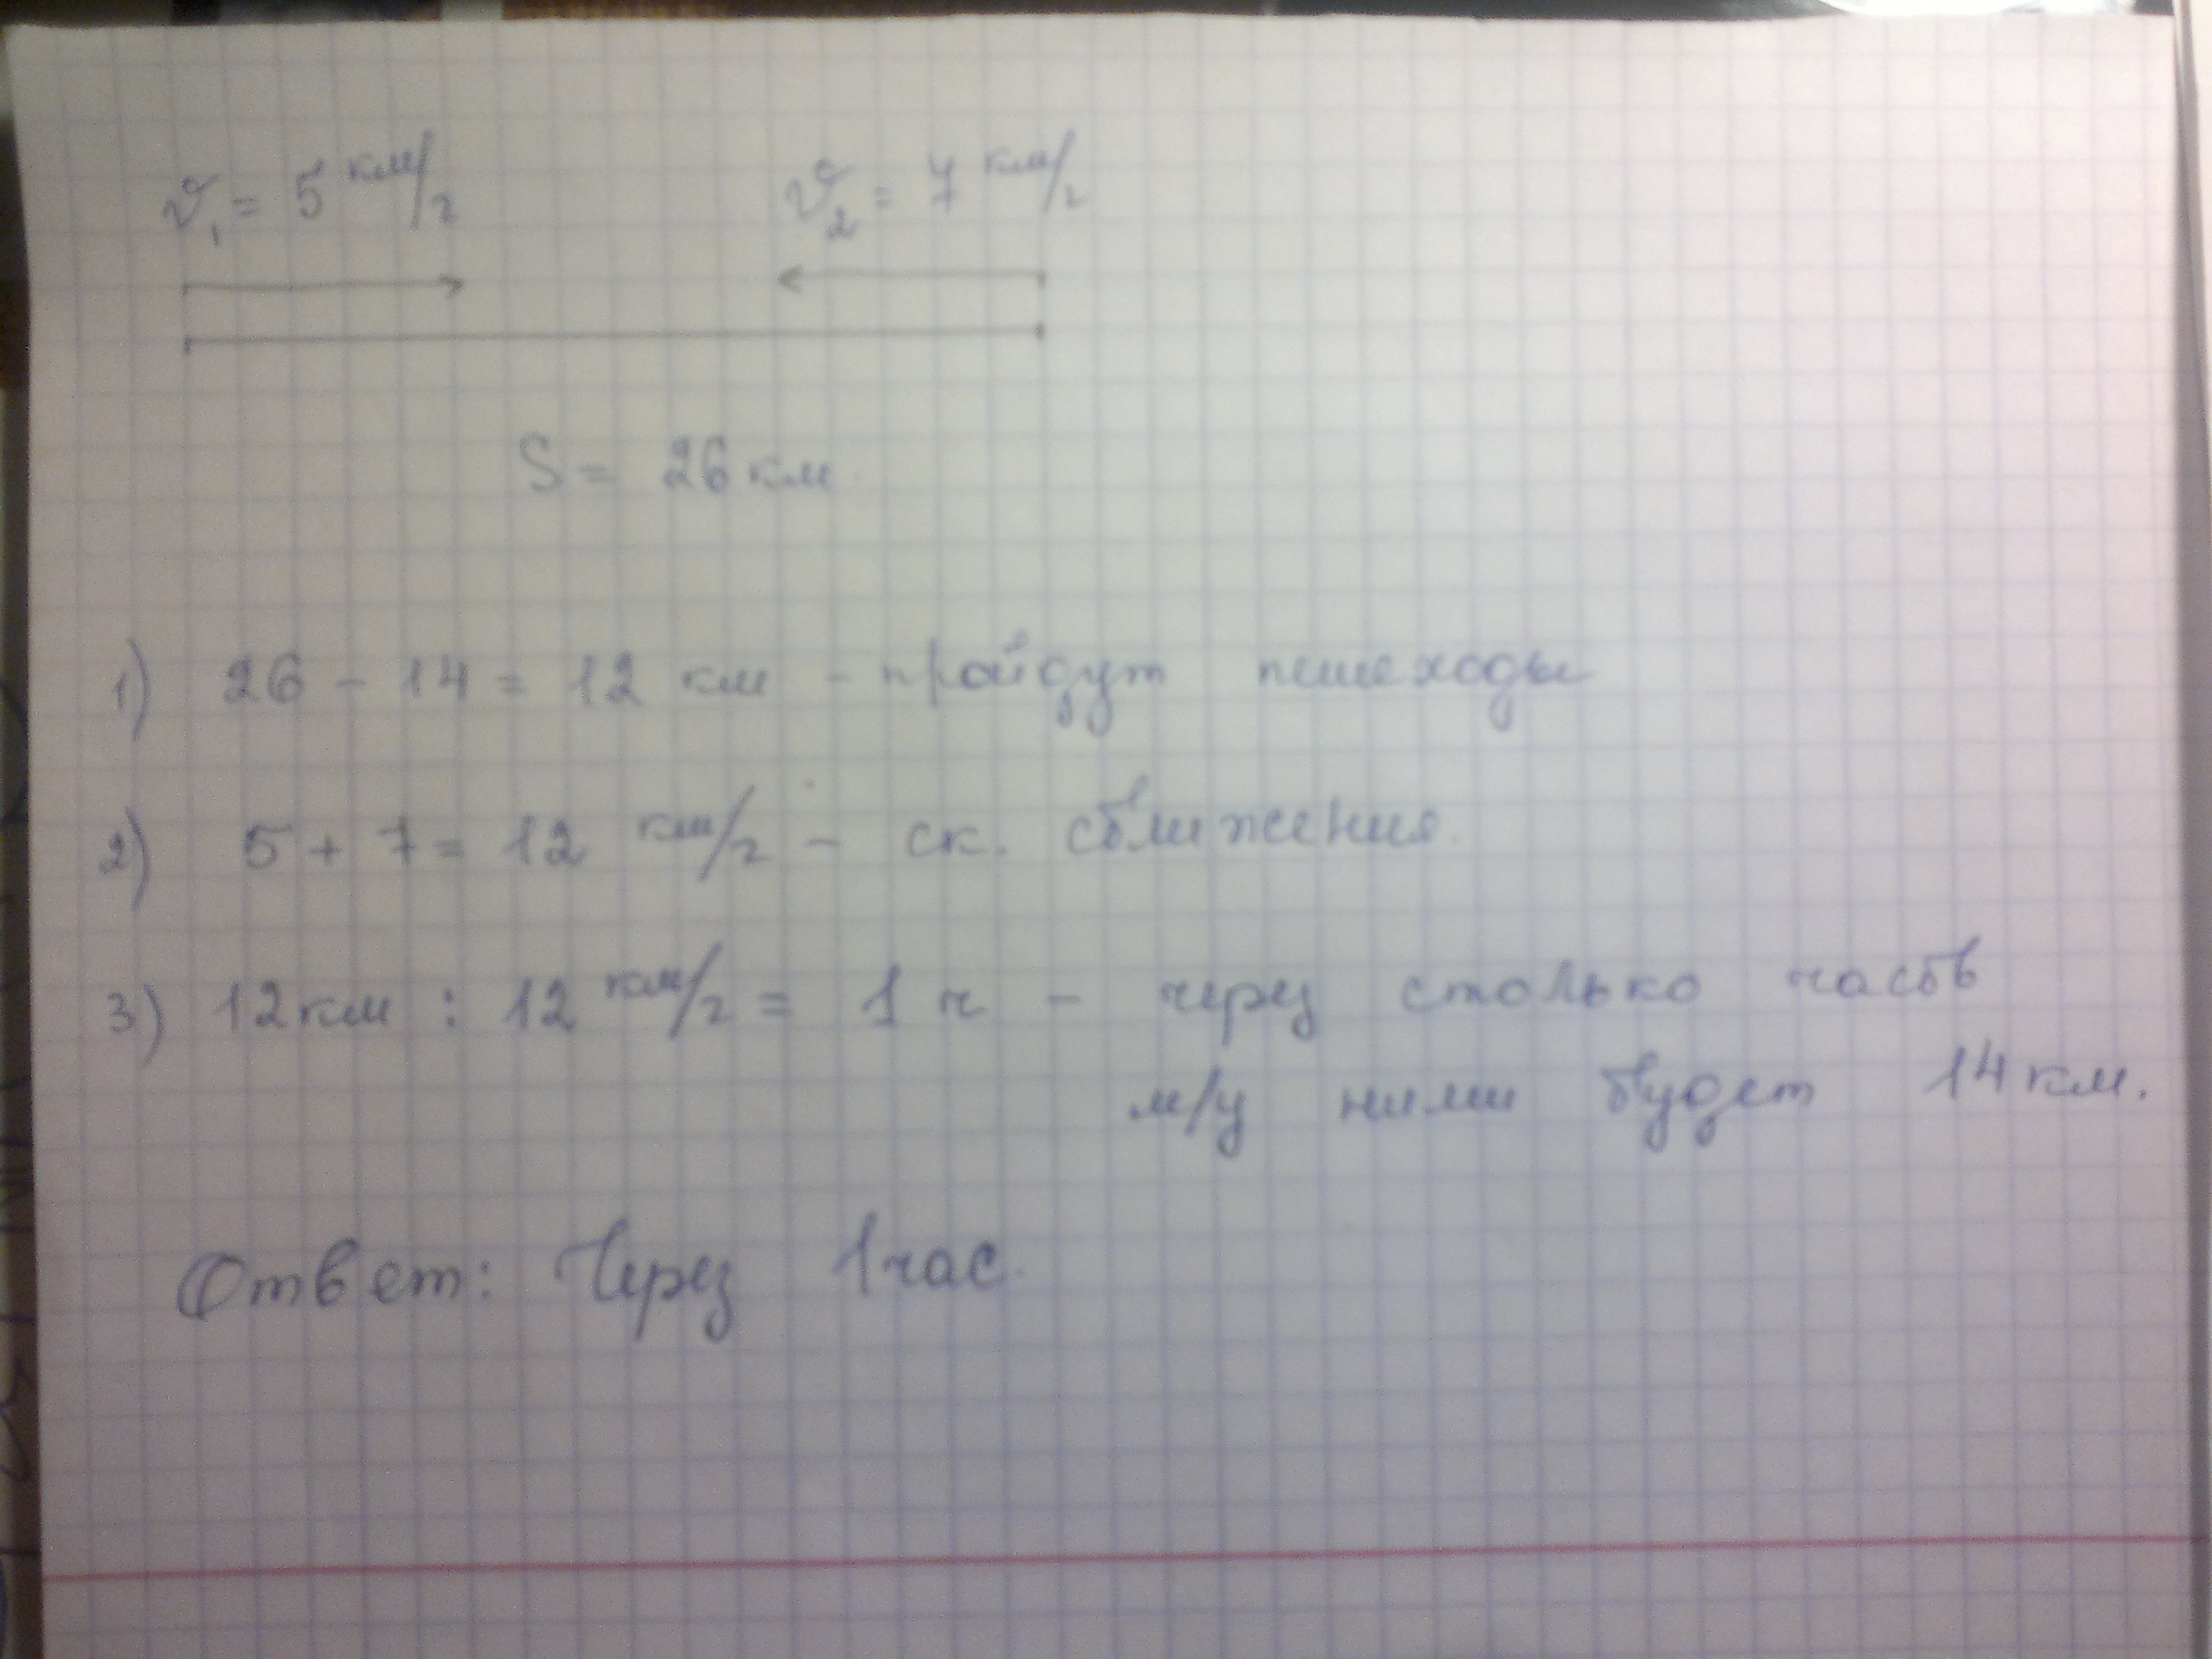 v₁ = 5 км/ч v₂ = 7 км/ч
S = 26 км.
1) 26 - 14 = 12 км - пройдут пешеходы
2) 5 + 7 = 12 км/ч - ск. сближения.
3) 12 км : 12 км/ч = 1 ч - через столько часов
м/у ними будет 14 км.
Ответ: Через 1 час.